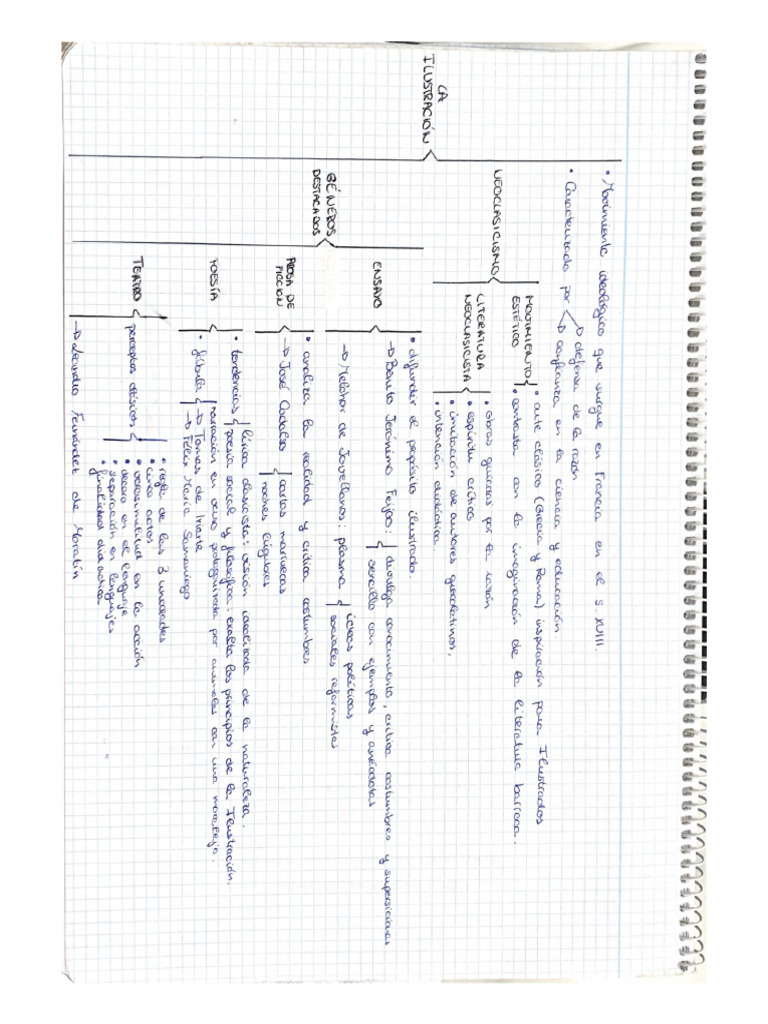 LA
ILUSTRACIÓN
• Movimiento ideológico que surge en Francia en el s. XVIII.
• Caracterizado por
→ defensa de la razón
→ confianza en la ciencia y educación.
NEOCLASICISMO
MOVIMIENTO
ESTÉTICO
• arte clásico (Grecia y Roma) inspiración para Ilustrados
• contrasta con la imaginación de la literatura barroca.
LITERATURA
NEOCLASICISTA
• obras guiadas por la razón
• espíritu crítico
• imitación de autores grecolatinos.
• intención didáctica.
GÉNEROS
DESTACADOS
ENSAYO
• difunder el propósito ilustrado.
→ Benito Jerónimo Feijoo:
divulga conocimiento, critica costumbres y supersiciones
sencillo con ejemplos y anécdotas
→ Melchor de Jovellanos: plasma
ideas políticas
sociales reformistas
PROSA DE
FICCIÓN
• analiza la realidad y critica costumbres
→ José Cadalso
cartas marruecas
noches lúgubres
POESÍA
• tendencias
lírica clasicista: visión idealizada de la naturaleza.
poesía social y filosófica: exalta los principios de la Ilustración.
• fábula
narración en verso protagonizada por animales con una moraleja.
→ Tomas de Iriarte
→ Félix María Samaniego
TEATRO
preceptos clásicos
• regla de las 3 unidades
• cinco actos
• verosimilitud en la acción
• decoro en el lenguaje
• separación en lenguajes
• finalidad didáctica
→ Leandro Fernández de Moratín